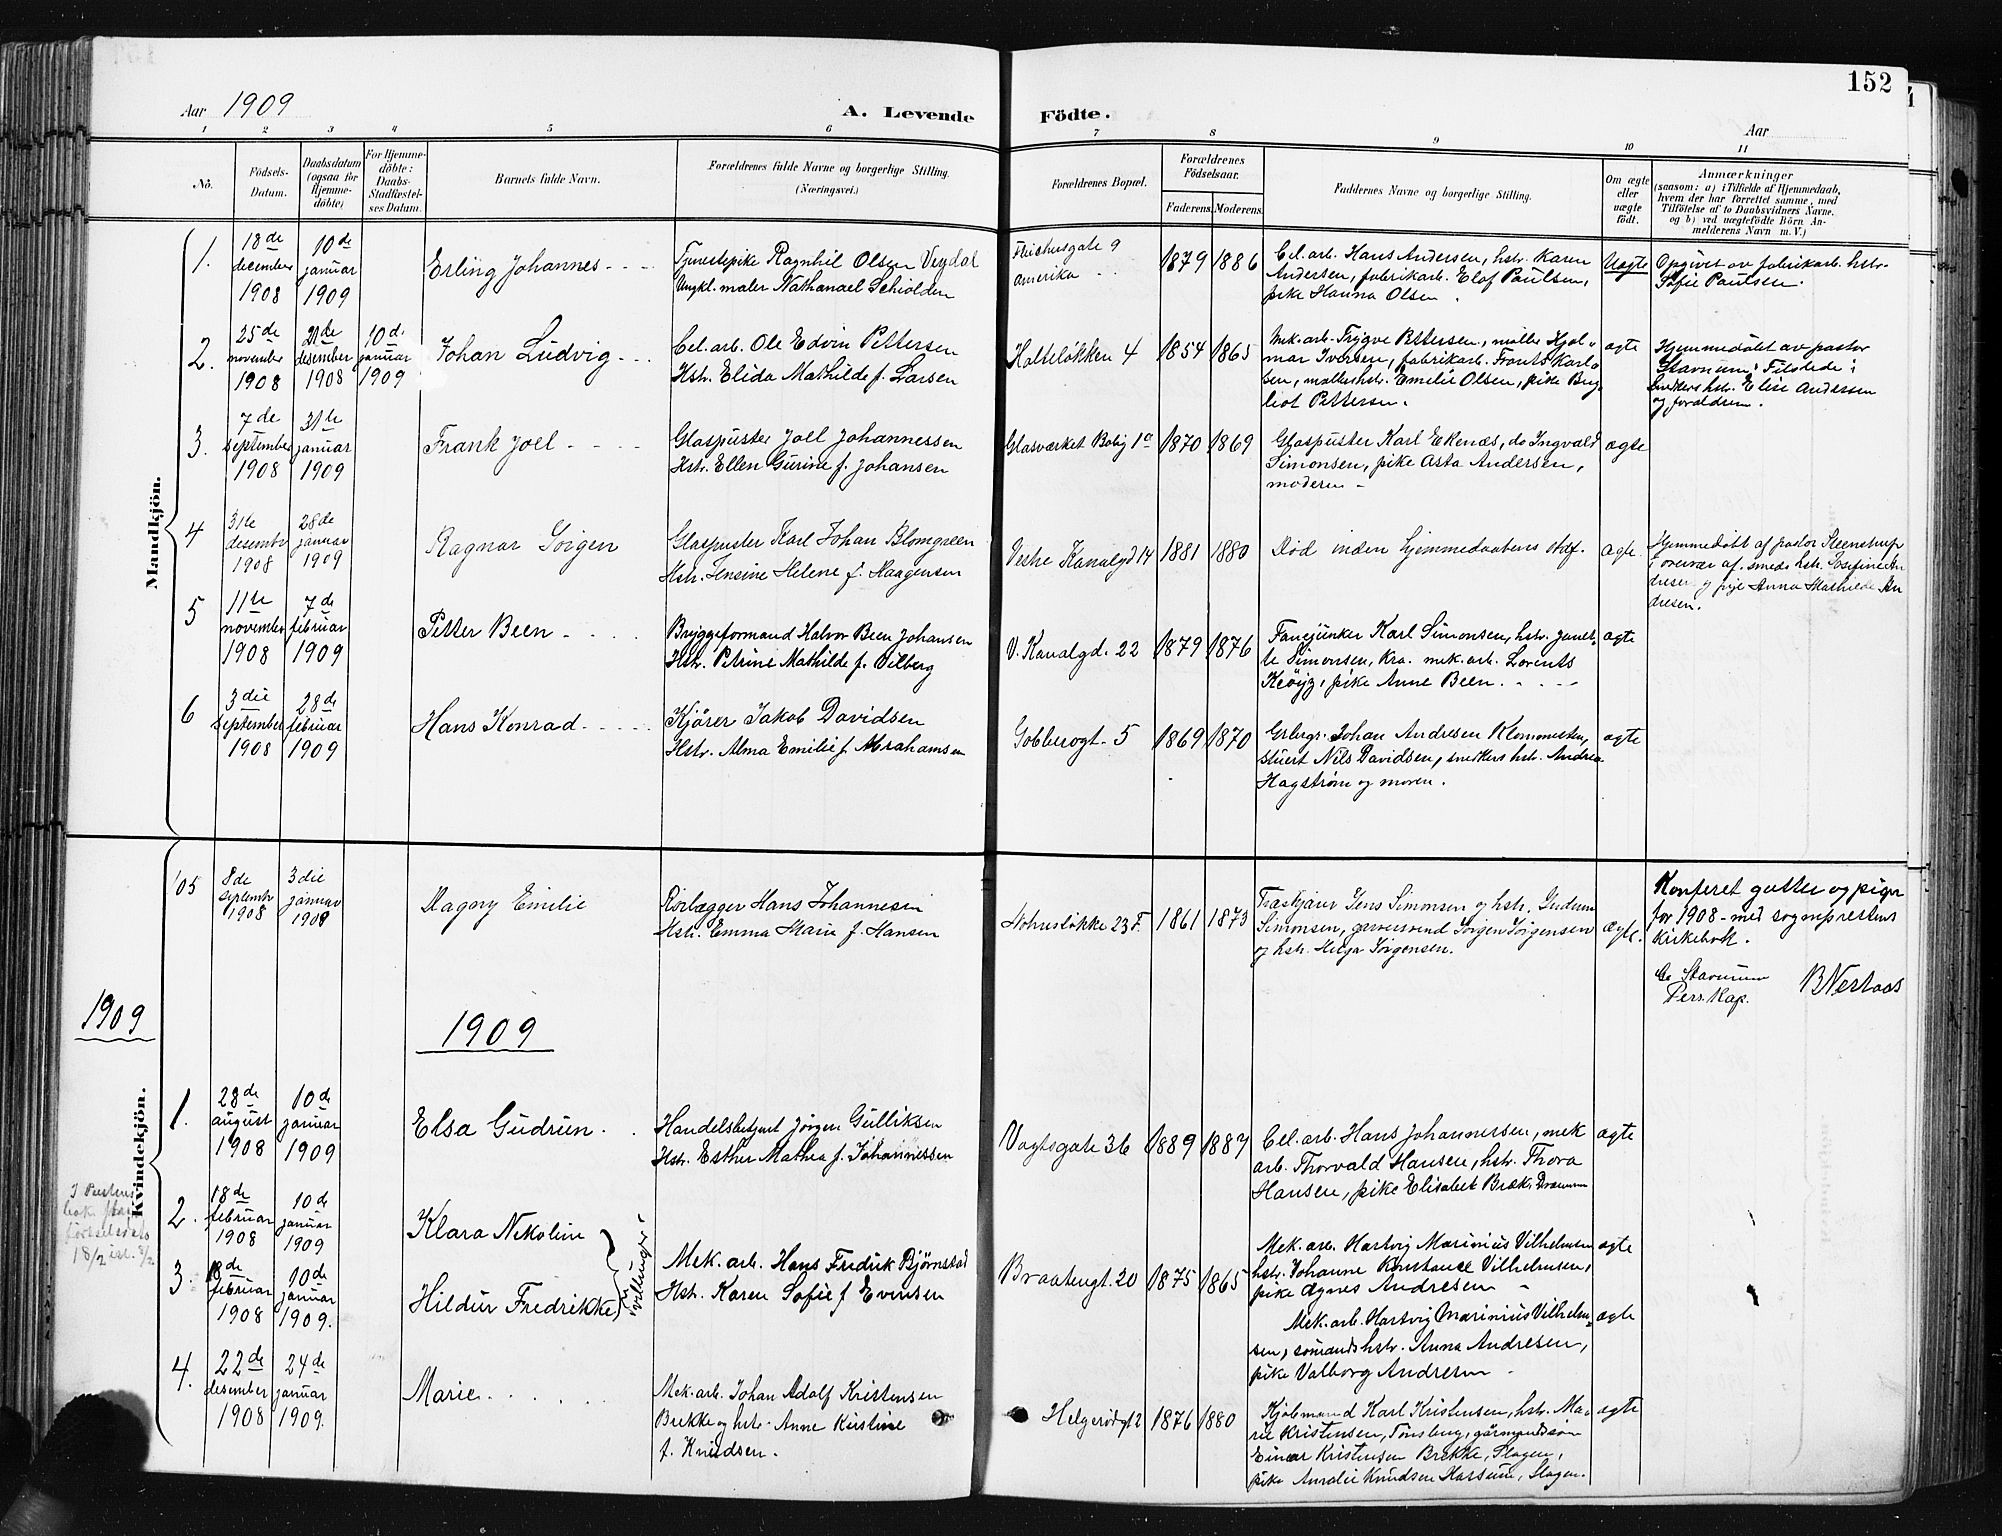 152
Aar 1909
A. Levende Födte.
Aar
1 2 3 4 5 6 7 8 9 10 11
No.
Födsels-Datum.
Daabsdatum (ogsaa for Hjemmedöbte)
For Hjemmedöbte: Daabs-Stadfæstelses Datum.
Barnets fulde Navn.
Forældrenes fulde Navne og borgerlige Stilling. (Næringsvei.)
Forældrenes Bopæl.
Forældrenes Födselsaar.
Faderens. Moderens.
Faddernes Navne og borgerlige Stilling.
Om ægte eller uægte født.
Anmærkninger
(saasom: a) i Tilfælde af Hjemmedaab, hvem der har forrettet samme, med Tilföielse af to Daabsvidners Navne. og b) ved uægtefödte Börn Anmelderens Navn m. V.)
Mandkjön.
1. 18de december 1908
10de januar 1909
Erling Johannes
Tjenestepike Ragnhil Olsen
Ungk. maler Nathanael Schiolden
Amerika
1879 1886
Cel. arb. Hans Andersen, hstr. Karen
Andersen, fabrikarb. Elof Paulsen,
pike Hanna Olsen.
Uagte
Opgivet av fabrikarb. hstr.
Sofie Paulsen.
2. 25de november 1908
21de desember 1908
10de januar 1909
Johan Ludvig
Cel. arb. Ole Edvin Pettersen
Hstr. Elida Mathilde f. Larsen
Halteløkken 4
1854 1865
Mek. arb. Trygve Pettersen, møller Hjal-
mar Iversen, fabrikarb. Frants Karl-
sen, møllerhstr. Emelie Olsen, pike
Pettersen.
agte
Hjemmedøbt av pastor
Stavnum: Tilstede:
hstr. Elise Andersen
og forældrene.
3. 7de september 1908
31te januar 1909
Frank Joel
Glaspuster Joel Johannessen
Hstr. Ellen Gurine f. Johansen
Glasværket Bolig 1a
1870 1869
Glaspuster Karl Ekenæs, do Ingvald
Simonsen, pike Asta Andersen,
moderen
agte
4 31te desembr 1908
28de januar 1909
Ragnar Jørgen
Glaspuster Karl Johan Blomgreen
Hstr. Jensine Helene f. Haagensen
Vestre Kanalgd 14
1881 1880
Død inden hjemmedaabens stdf.
agte
Hjemmedøbt af pastor Steenstrup
i overvær af smeds hstr. Josefine An
dresen og pige Anna Mathilde An
dresen.
5 11te november 1908
7de februar 1909
Petter Been
Bryggeformand Halvor Been Johansen
Hstr. Petrine Mathilde f. Vilberg
V. Kanalgd. 22
1879 1876
Fanejunker Karl Simonsen, hstr. Janet-
te Simonsen, Kra. mek. arb. Lorents
pike Anne Been.
agte
6 3die september 1908
28de februar 1909
Hans Konrad
Kjører Jakob Davidsen
Hstr. Alma Emilie f. Abrahamsen
Gobberogt. 5
1869 1870
Grbergr. Johan Andresen Klommesten,
stuert Nils Davidsen, snedkers hstr. Andrea
Hagstrøm og moren.
agte
105 8de septembr 1908
3die januar 1909
Dagny Emilie
Rørlægger Hans Johannesen
Hstr. Emma Marie f. Hansen
1861 1873
Jens Simonsen og hstr. Gudrun
Simonsen, garversvend Jørgen Jørgensen
og hstr. Helga Jørgensen.
ægte.
Konferet gutter og piger
for 1908 med sogneprestens
kirkebok.
Stavnum
Pers. Kap.
1909
1909
Kvindekjön.
1. 28de august 1908
10de januar 1909
Elsa Gudrun
Handelsbetjent Jørgen Gulliksen
Hstr. Esther Mathea f. Johannessen
Vogtsgate 36
1889 1887
Cel. arb. Hans Johannessen, mek
arb. Thorvald Hansen, hstr. Thora
Hansen, pike Elisabet Bræk, Drammen
agte
2. 18de februar 1908
10de januar 1909
Klara Nikoline
tvillinger
Mek. arb. Hans Fredrik Bjørnstad
Hstr. Karen Sofie f. Evensen
Braatengt. 20
1875 1865
Mek. arb. Hartvig Marinius Vilhelmsen
hstr. Johanne Konstance Vilhelmsen,
pike Agnes Andresen
agte
3 18de februar 1908
10de januar 1909.
Hildur Fredrikke
Mek. arb. Hartvig Marinius Vilhelm-
sen, sømands hstr. Anna Andresen,
pike Valborg Andresen
agte
4. 22de desember 1908
24de januar 1909.
Marie
Mek. arb. Johan Adolf Kristensen
Brekke og hstr. Anne Kirstine
f. Knudsen.
Helgerødgt 2
1876 1880
Kjøbmand Karl Kristensen, hstr. Ma-
rie Kristensen, Tønsberg, gårmandssøn
Einar Kristensen Brekke, Slagen,
pike Amalie Knudsen Horsum, Slagen.
agte